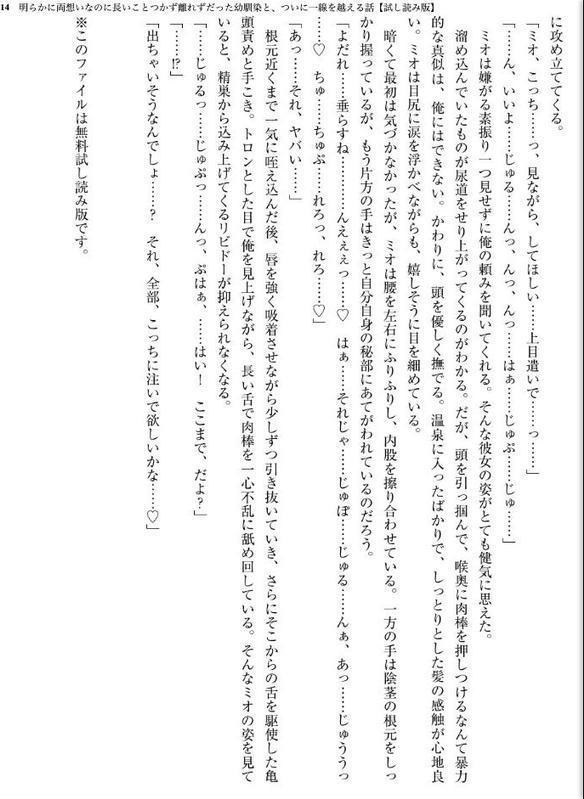 14 明らかに両想いなのに長いことつかず離れずだった幼馴染と、ついに一線を越える話【試し読み版】
に攻め立ててくる。
「ミオ、こっち……っ、見ながら、してほしい……上目遣いで……っ……」
「……ん、いいよ……じゅる……んっ、んっ、んっ……はぁ……じゅぷ……じゅ……」
ミオは嫌がる素振り一つ見せずに俺の頼みを聞いてくれる。そんな彼女の姿がとても健気に思えた。
溜め込んでいたものが尿道をせり上がってくるのがわかる。だが、頭を引っ掴んで、喉奥に肉棒を押しつけるなんて暴力
的な真似は、俺にはできない。かわりに、頭を優しく撫でる。温泉に入ったばかりで、しっとりとした髪の感触が心地良
い。ミオは目尻に涙を浮かべながらも、嬉しそうに目を細めている。
暗くて最初は気づかなかったが、ミオは腰を左右にふりふりし、内股を擦り合わせている。一方の手は陰茎の根元をしっ
かり握っているが、もう片方の手はきっと自分自身の秘部にあてがわれているのだろう。
「よだれ……垂らすね………んえぇぇっ……♡ はぁ……それじゃ……じゅぽ……じゅる……んぁ、あっ……じゅううっ
……♡ ちゅ……ちゅぷ……れろっ、れろ……♡」
「あっ……それ、ヤバい……」
根元近くまで一気に咥え込んだ後、唇を強く吸着させながら少しずつ引き抜いていき、さらにそこからの舌を駆使した亀
頭責めと手こき。トロンとした目で俺を見上げながら、長い舌で肉棒を一心不乱に舐め回している。そんなミオの姿を見て
いると、精巣から込み上げてくるリビドーが抑えられなくなる。
「……じゅるっ……じゅぷっ……んっ、ぷはぁ、……はい！ ここまで、だよ？」
「……!?」
「出ちゃいそうなんでしょ……？ それ、全部、こっちに注いで欲しいかな……♡」
※このファイルは無料試し読み版です。